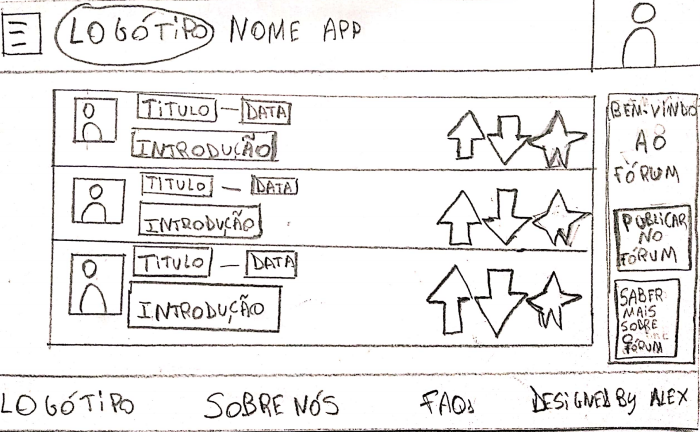 LOGÓTIPO NOME APP
TITULO — DATA
INTRODUÇÃO
TITULO — DATA
INTRODUÇÃO
TITULO — DATA
INTRODUÇÃO
BEM-VINDO
AO
FÓRUM
PUBLICAR
NO
FÓRUM
SABER
MAIS
SOBRE
O
FÓRUM
LOGÓTIPO SOBRE NÓS FAQs DESIGNED By ALEX